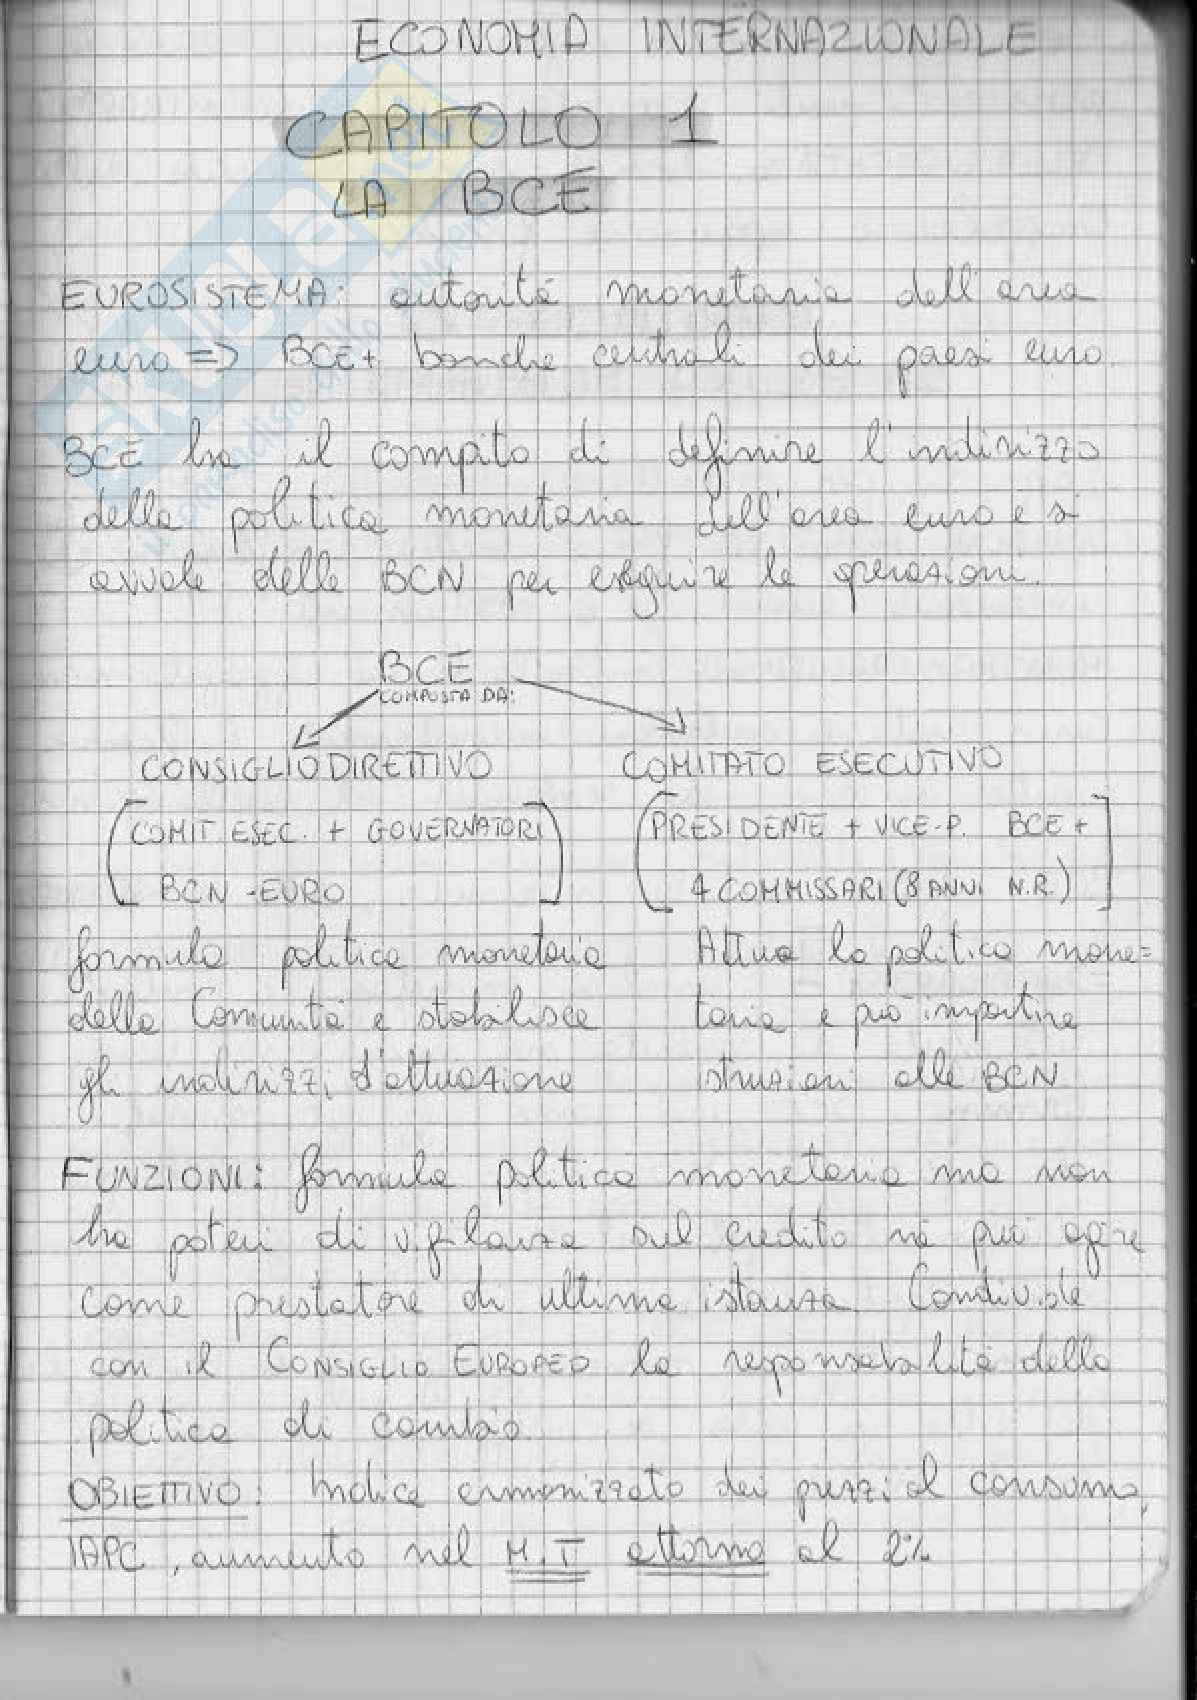 ECONOMIA INTERNAZIONALE
CAPITOLO 1
LA BCE
EUROSISTEMA: autorità monetaria dell'area
euro => BCE + banche centrali dei paesi euro.
BCE ha il compito di definire l'indirizzo
della politica monetaria dell'area euro e si
avvale delle BCN per eseguire le operazioni.
BCE
COMPOSTA DA:
CONSIGLIO DIRETTIVO COMITATO ESECUTIVO
(COMIT. ESEC. + GOVERNATORI [PRESIDENTE + VICE-P. BCE +
BCN - EURO] 4 COMMISSARI (8 ANNI N.R.)]
formula politica monetaria Attua la politica mone=
della Comunità e stabilisce taria e può impartire
gli indirizzi d'attuazione istruzioni alle BCN
FUNZIONI: formula politica monetaria ma non
ha poteri di vigilanza sul credito né può agire
come prestatore di ultima istanza. Condivide
con il CONSIGLIO EUROPEO la responsabilità della
politica di cambio.
OBIETTIVO: Indice armonizzato dei prezzi al consumo,
IAPC, aumento nel M.T attorno al 2%
SKUOLA.net